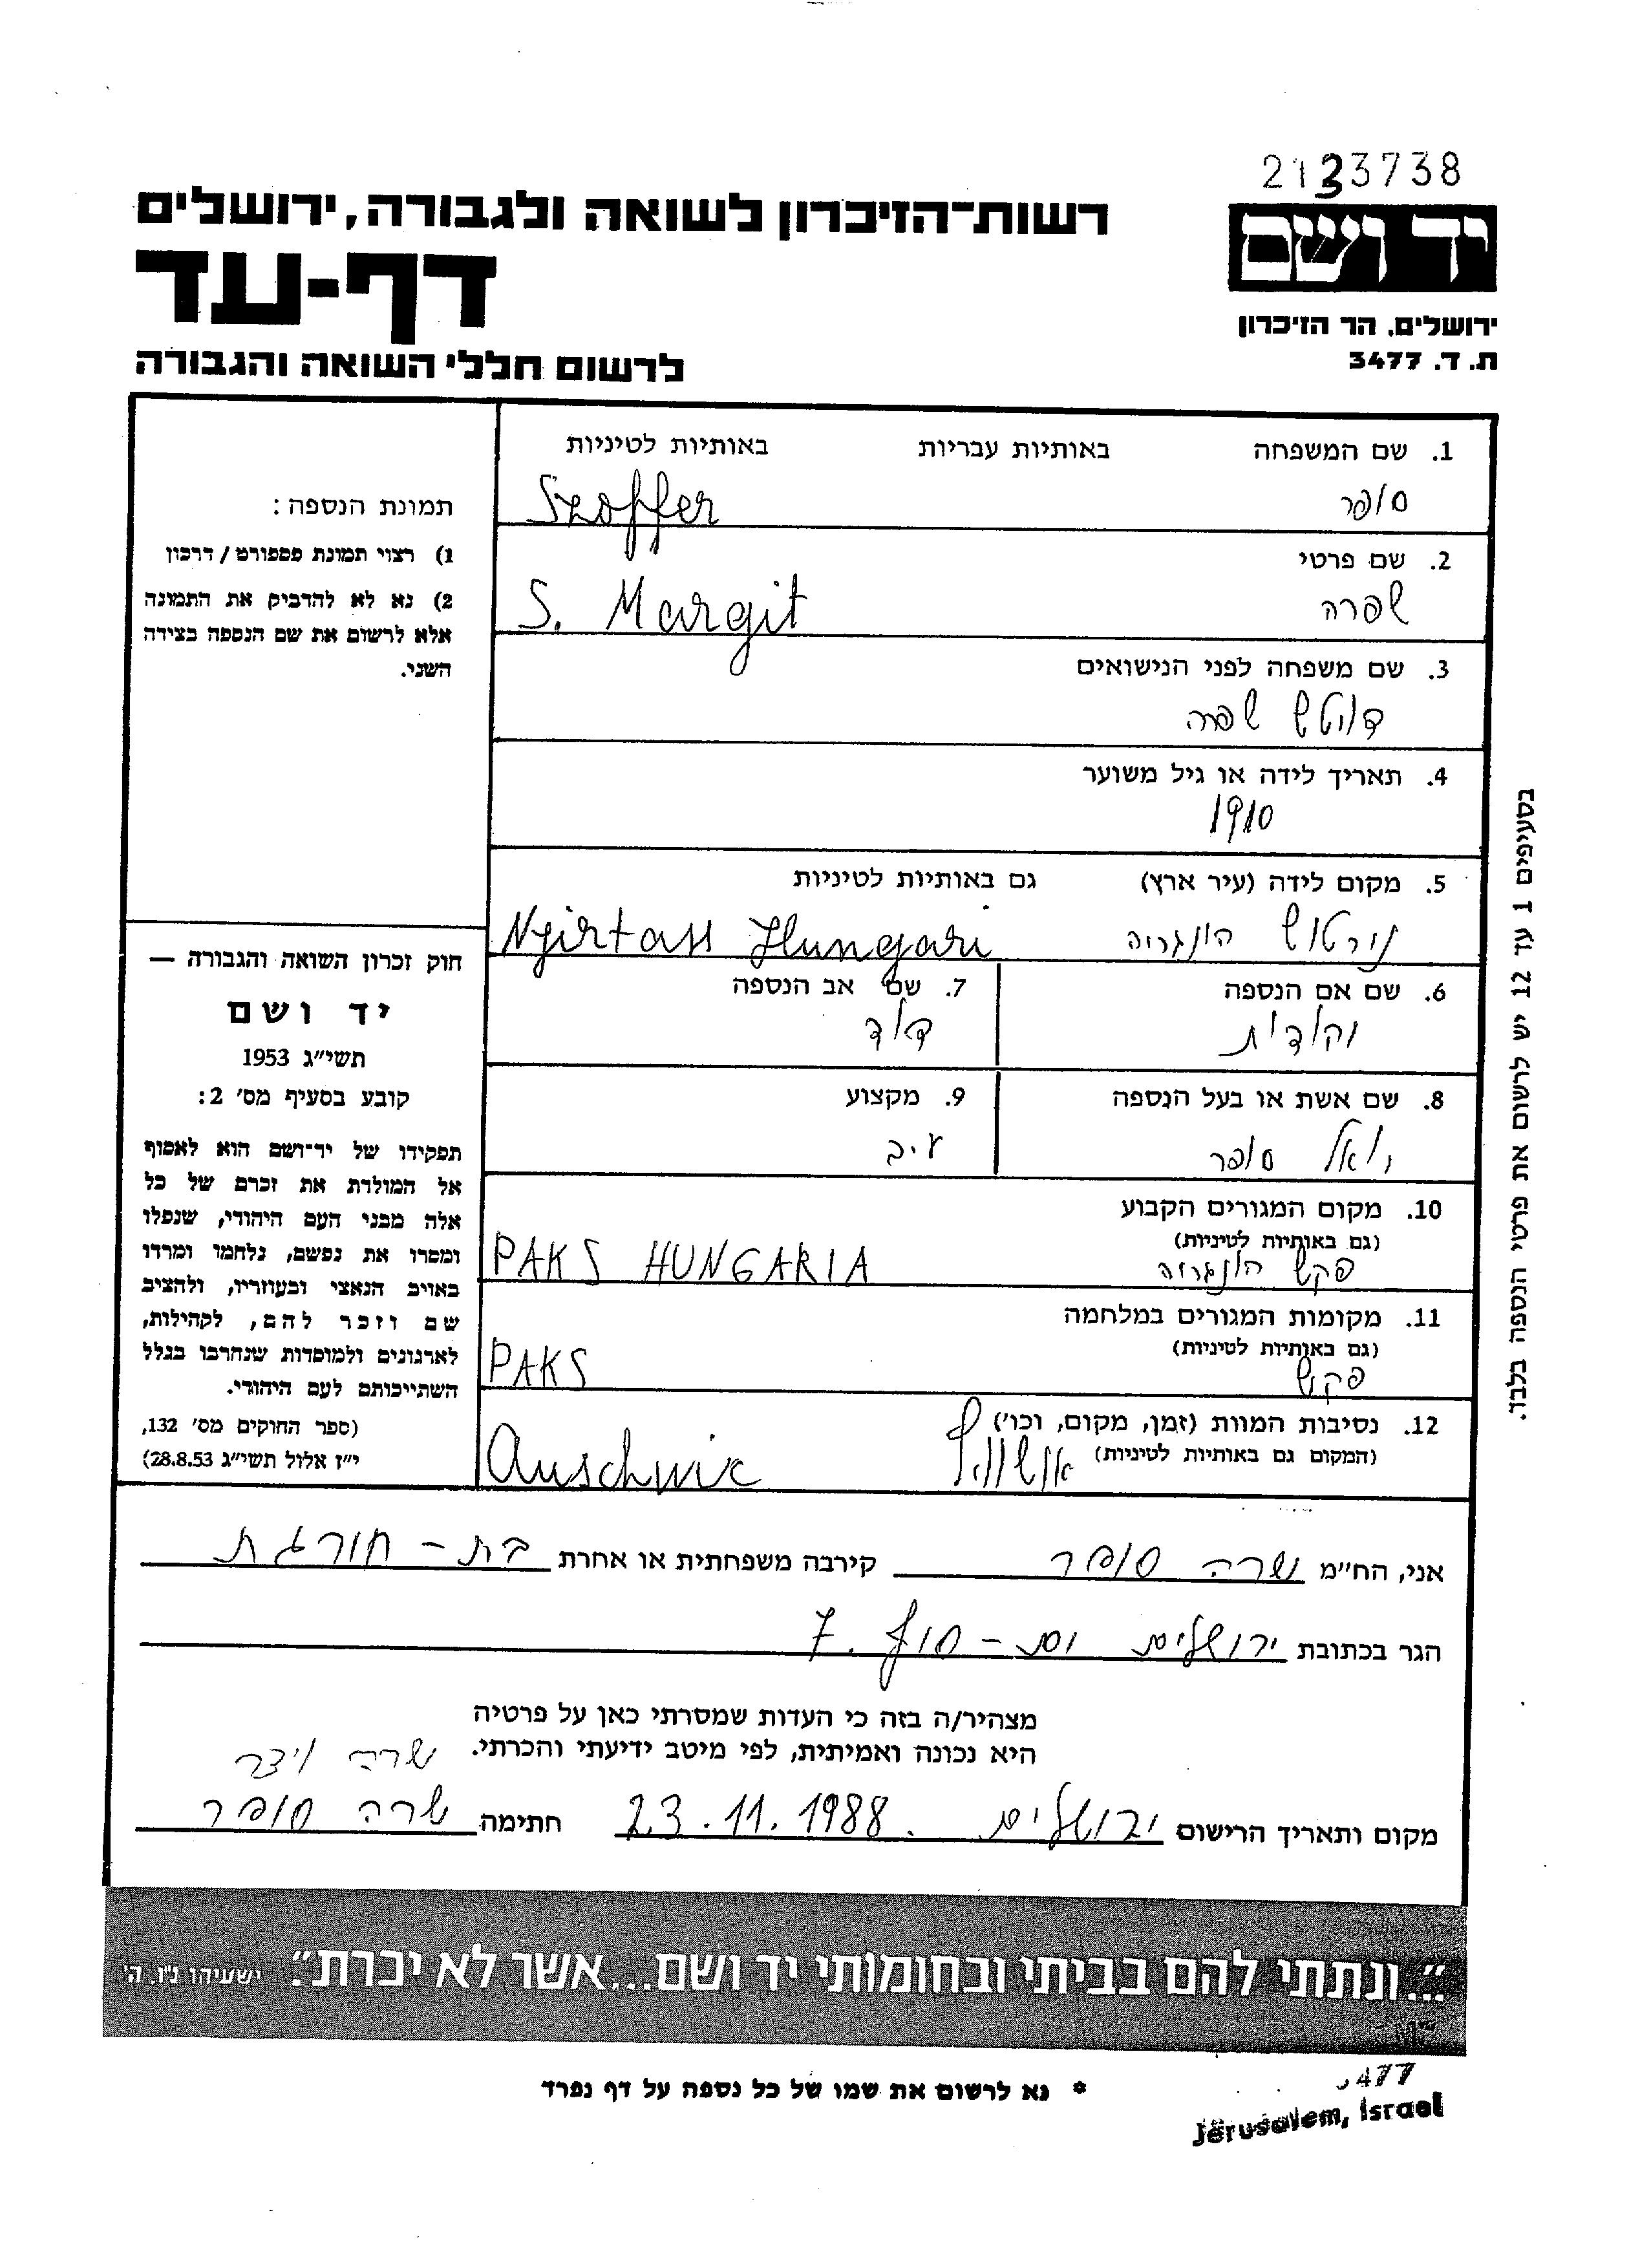 2133738
יד ושם
ירושלים, הר הזיכרון
ת.ד. 3477
רשות־הזיכרון לשואה ולגבורה, ירושלים
דף-עד
לרשום חללי השואה והגבורה
1. שם המשפחה באותיות עבריות באותיות לטיניות
סופר Szoffer
2. שם פרטי
שפרה S. Margit
3. שם משפחה לפני הנישואים
דויטש שפרה
4. תאריך לידה או גיל משוער
1910
5. מקום לידה (עיר ארץ) גם באותיות לטיניות
נירטוש הונגריה Nyirtass Hungari
6. שם אם הנספה 7. שם אב הנספה
דוד
8. שם אשת או בעל הנספה 9. מקצוע
יואל סופר
10. מקום המגורים הקבוע
(גם באותיות לטיניות)
פקש הונגריה PAKS HUNGARIA
11. מקומות המגורים במלחמה
(גם באותיות לטיניות)
פקש PAKS
12. נסיבות המוות (זמן, מקום, וכו')
(המקום גם באותיות לטיניות) אושוויץ Auschwix
תמונת הנספה:
1) רצוי תמונת פספורט / דרכון
2) נא לא להדביק את התמונה
אלא לרשום את שם הנספה בצידה
השני.
חוק זכרון השואה והגבורה —
יד ושם
תשי״ג 1953
קובע בסעיף מס' 2:
תפקידו של יד־ושם הוא לאסוף
אל המולדת את זכרם של כל
אלה מבני העם היהודי, שנפלו
ומסרו את נפשם, נלחמו ומרדו
באויב הנאצי ובעוזריו, ולהציב
שם וזכר להם, לקהילות,
לארגונים ולמוסדות שנחרבו בגלל
השתייכותם לעם היהודי.
(ספר החוקים מס' 132,
י״ז אלול תשי״ג 28.8.53)
בסעיפים 1 עד 12 יש לרשום את פרטי הנספה בלבד.
אני, הח״מ שרה סופר קירבה משפחתית או אחרת בת - חורגת
הגר בכתובת ירושלים 7
מצהיר/ה בזה כי העדות שמסרתי כאן על פרטיה
היא נכונה ואמיתית, לפי מיטב ידיעתי והכרתי.
שרה
מקום ותאריך הרישום ירושלים. 23.11.1988 חתימה שרה סופר
״...ונתתי להם בביתי ובחומותי יד ושם...אשר לא יכרת״. ישעיהו נ״ו, ה'
* נא לרשום את שמו של כל נספה על דף נפרד
477
Jerusalem, Israel